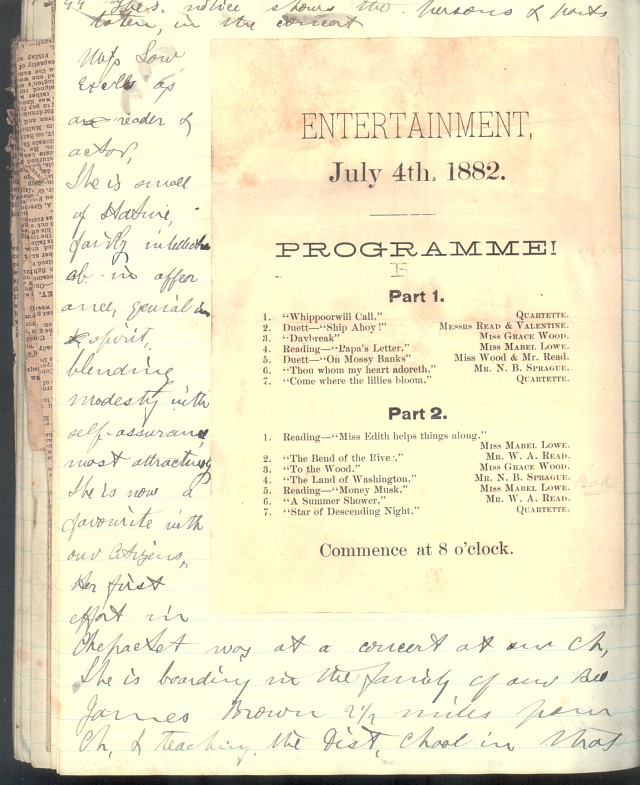 44 This notice shows the persons & parts
taken, in the concert
Miss Low
excells as
an reader &
actor,
She is small
of Stature,
fairly intellectu
al in appear
ance, genial in
spirit,
blending
modesty with
self-assurance
most attractively
She is now a
favourite with
our Citizens,
Her first
effort in
Chepachet was at a concert at our Ch,
She is boarding in the family of our Bro
James Brown 2 1/2 miles from
Ch, & teaching the Dist, School in that
ENTERTAINMENT,
July 4th, 1882.
PROGRAMME!
Part 1.
1. "Whippoorwill Call," QUARTETTE.
2. Duett—"Ship Ahoy!" MESSRS READ & VALENTINE.
3. "Daybreak" MISS GRACE WOOD.
4. Reading—"Papa's Letter," MISS MABEL LOWE.
5. Duett—"On Mossy Banks" MISS WOOD & MR. READ.
6. "Thou whom my heart adoreth," MR. N. B. SPRAGUE.
7. "Come where the lillies bloom," QUARTETTE.
Part 2.
1. Reading—"Miss Edith helps things along,"
MISS MABEL LOWE.
2. "The Bend of the River," MR. W. A. READ.
3. "To the Wood." MISS GRACE WOOD.
4. "The Land of Washington," MR. N. B. SPRAGUE.
5. Reading—"Money Musk," MISS MABEL LOWE.
6. "A Summer Shower," MR. W. A. READ.
7. "Star of Descending Night," QUARTETTE.
Commence at 8 o'clock.